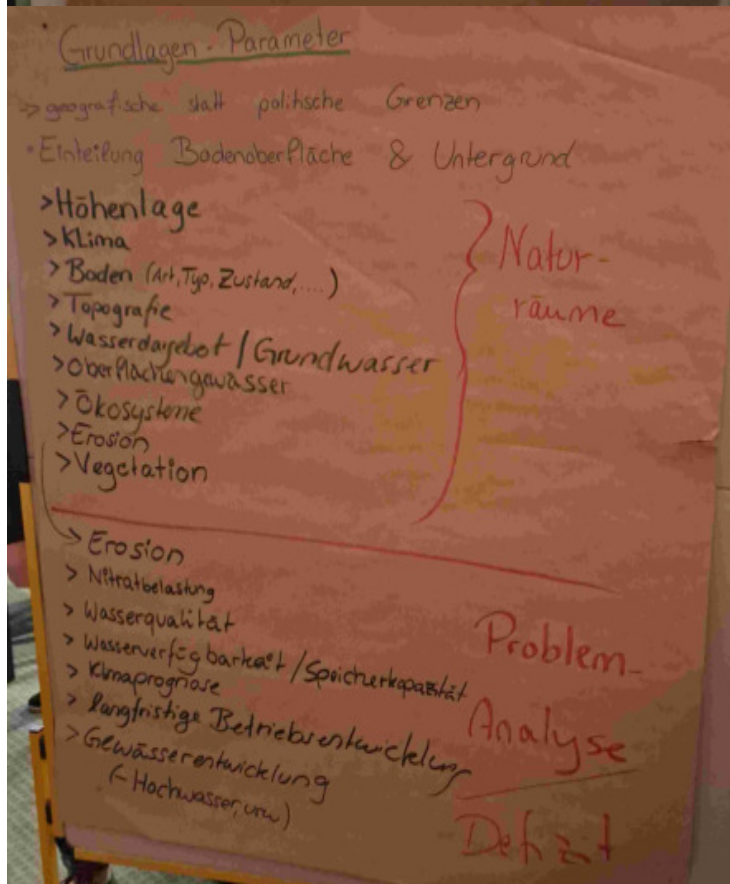 · Grundlagen - Parameter
-> geografische statt politsche Grenzen
· Einteilung Bodenoberfläche & Untergrund
> Höhenlage
> Klima
> Boden (Art, Typ, Zustand, ....)
> Topografie
> Wasserdargebot / Grundwasser
> Oberflächengewässer
> Ökosysteme
> Erosion
> Vegetation
Natur-
räume
> Erosion
> Nitratbelastung
> Wasserqualität
> Wasserverfügbarkeit / Speicherkapazität
> Klimaprognose
> langfristige Betriebsentwicklung
> Gewässerentwicklung
(- Hochwasser, usw)
Problem-
Analyse
Defizit